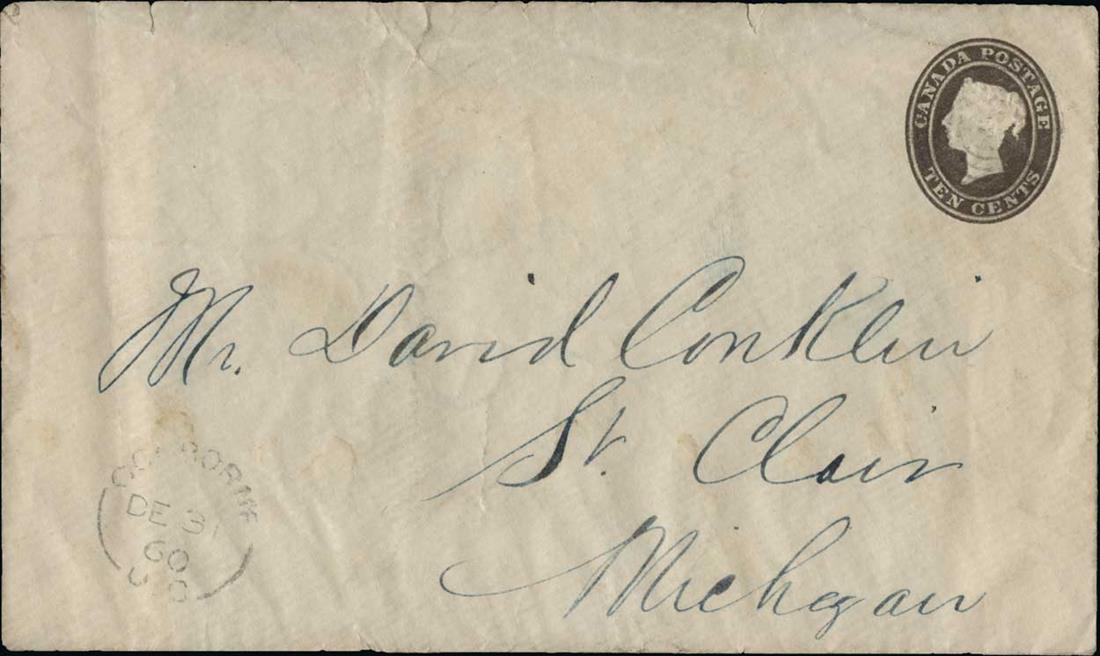 CANADA POSTAGE
TEN CENTS
Mr. David Conklin
St. Clair
Michigan
COLBORNE
DE 31
60